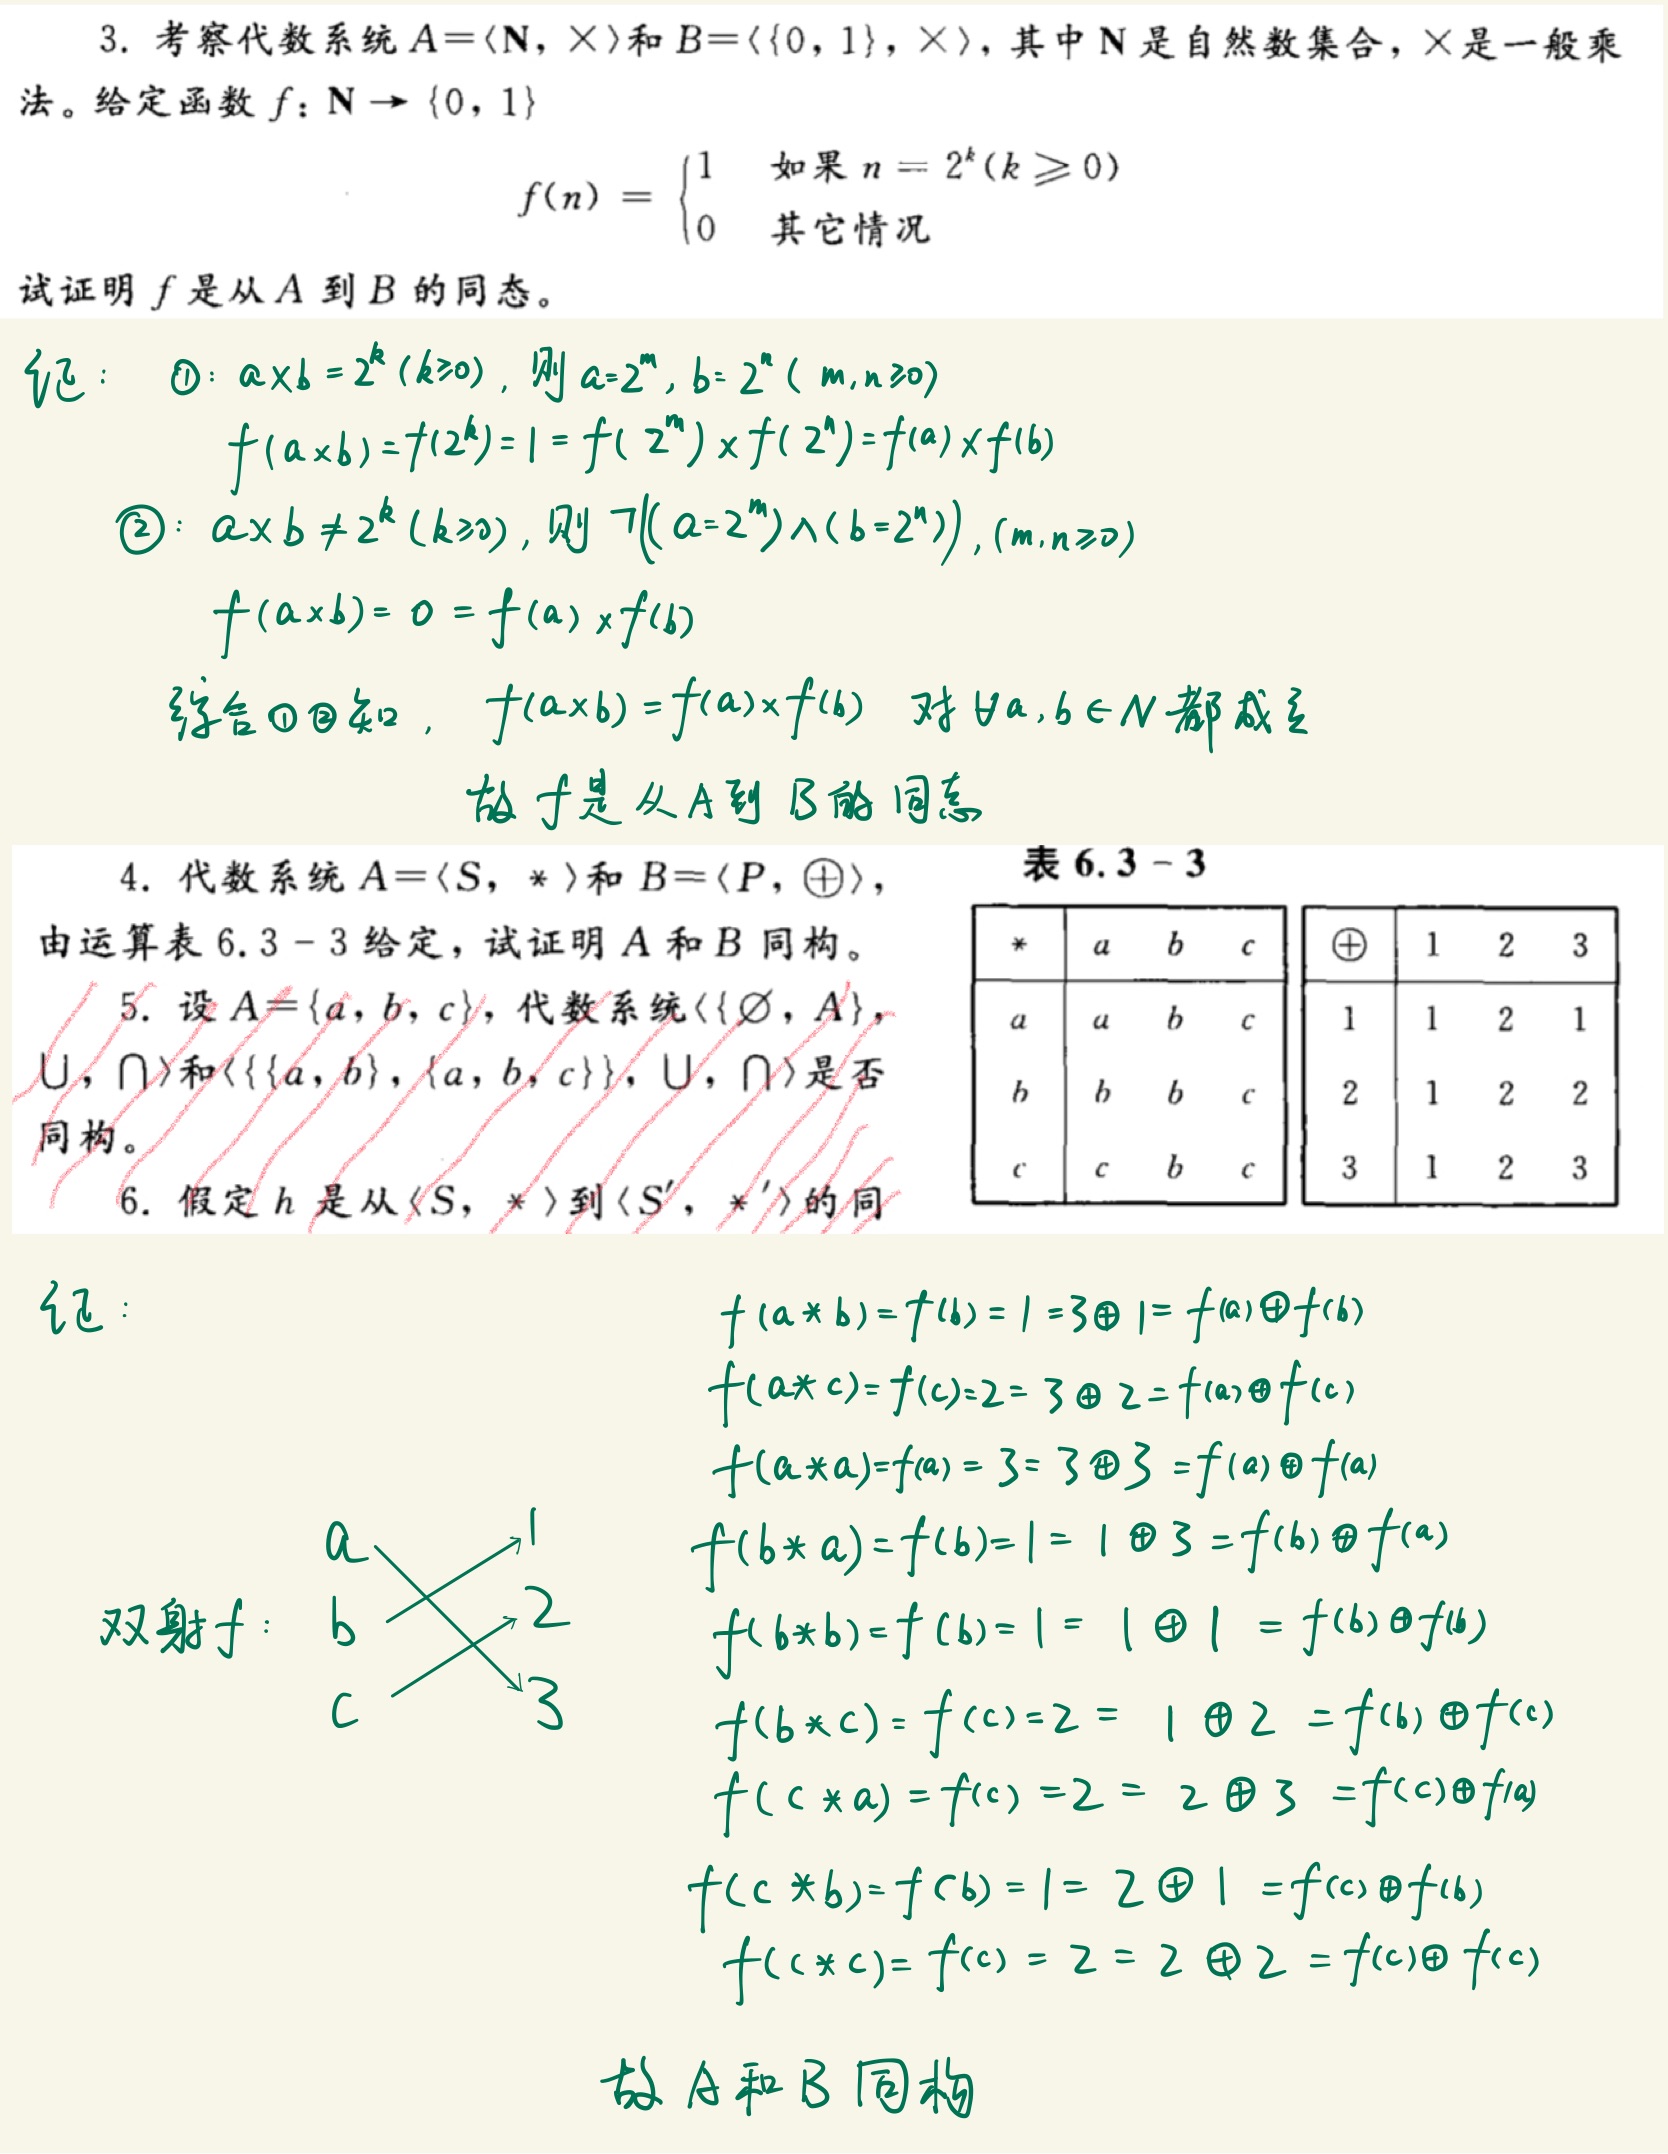 3. 考察代数系统 A=⟨N, ×⟩和 B=⟨{0, 1}, ×⟩, 其中 N 是自然数集合, ×是一般乘
法。给定函数 f: N → {0, 1}
f(n) = { 1 如果 n = 2^k (k ⩾ 0)
0 其它情况
试证明 f 是从 A 到 B 的同态。
证: ①: a×b=2^k (k≥0), 则 a=2^m, b=2^n (m,n≥0)
f(a×b)=f(2^k)=1=f(2^m)×f(2^n)=f(a)×f(b)
②: a×b≠2^k (k≥0), 则 ¬((a=2^m)∧(b=2^n)), (m,n≥0)
f(a×b)=0=f(a)×f(b)
综合①②知, f(a×b)=f(a)×f(b) 对∀a,b∈N都成立
故 f是从A到B的同态
4. 代数系统 A=⟨S, *⟩和 B=⟨P, ⊕⟩,
由运算表 6.3-3 给定, 试证明 A 和 B 同构。
5. 设 A={a, b, c}, 代数系统⟨{∅, A},
∪, ∩⟩和⟨{{a, b}, {a, b, c}}, ∪, ∩⟩是否
同构。
6. 假定 h 是从⟨S, *⟩到⟨S′, *′⟩的同
表 6.3-3
* a b c
a a b c
b b b c
c c b c
⊕ 1 2 3
1 1 2 1
2 1 2 2
3 1 2 3
证:
双射f:
a 1
b 2
c 3
f(a*b)=f(b)=1=3⊕1=f(a)⊕f(b)
f(a*c)=f(c)=2=3⊕2=f(a)⊕f(c)
f(a*a)=f(a)=3=3⊕3=f(a)⊕f(a)
f(b*a)=f(b)=1=1⊕3=f(b)⊕f(a)
f(b*b)=f(b)=1=1⊕1=f(b)⊕f(b)
f(b*c)=f(c)=2=1⊕2=f(b)⊕f(c)
f(c*a)=f(c)=2=2⊕3=f(c)⊕f(a)
f(c*b)=f(b)=1=2⊕1=f(c)⊕f(b)
f(c*c)=f(c)=2=2⊕2=f(c)⊕f(c)
故 A和B同构